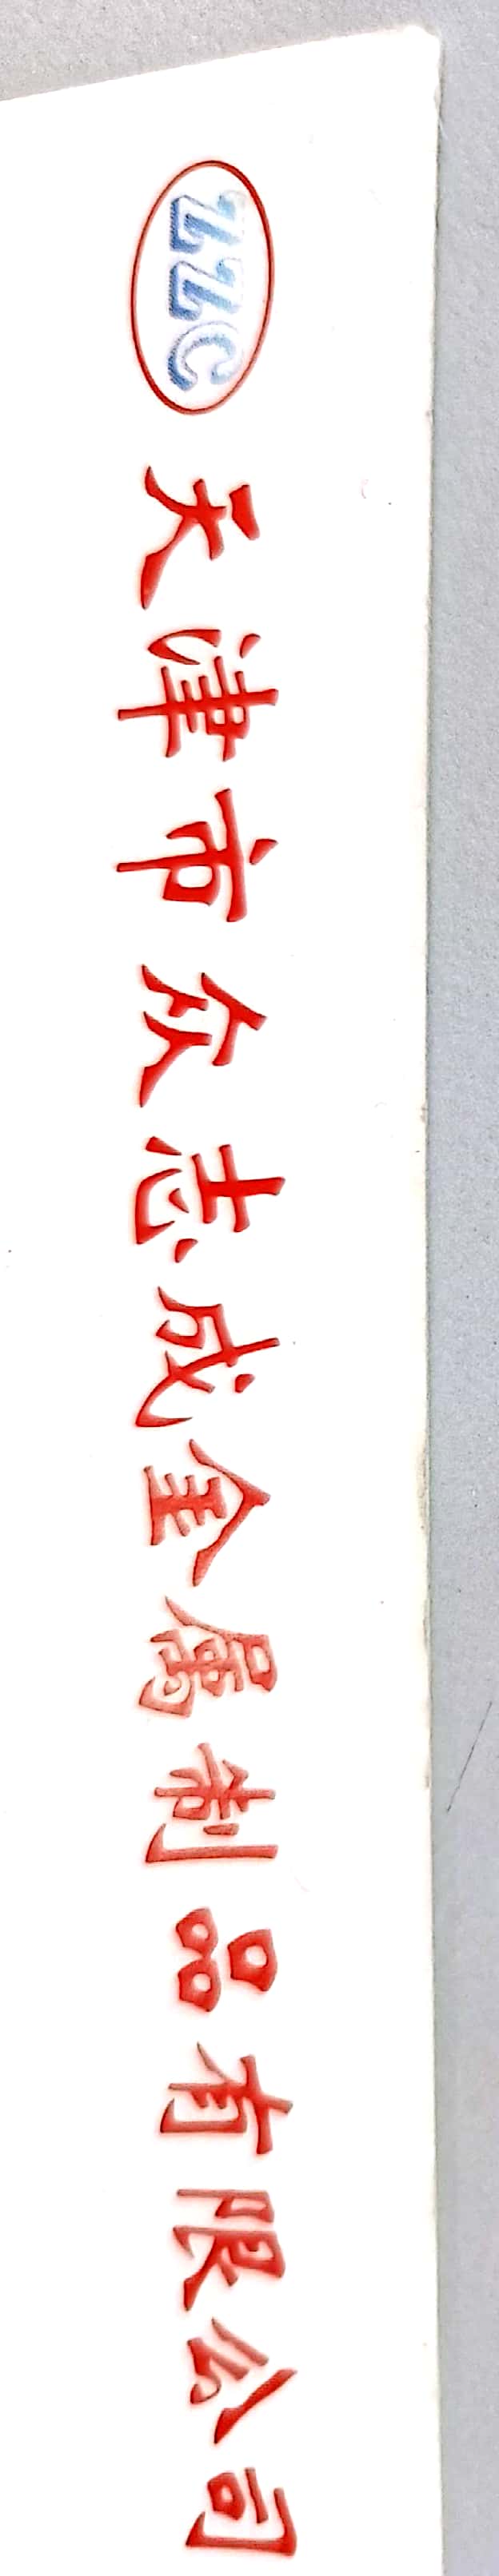 ZZC 天津市众志成金属制品有限公司